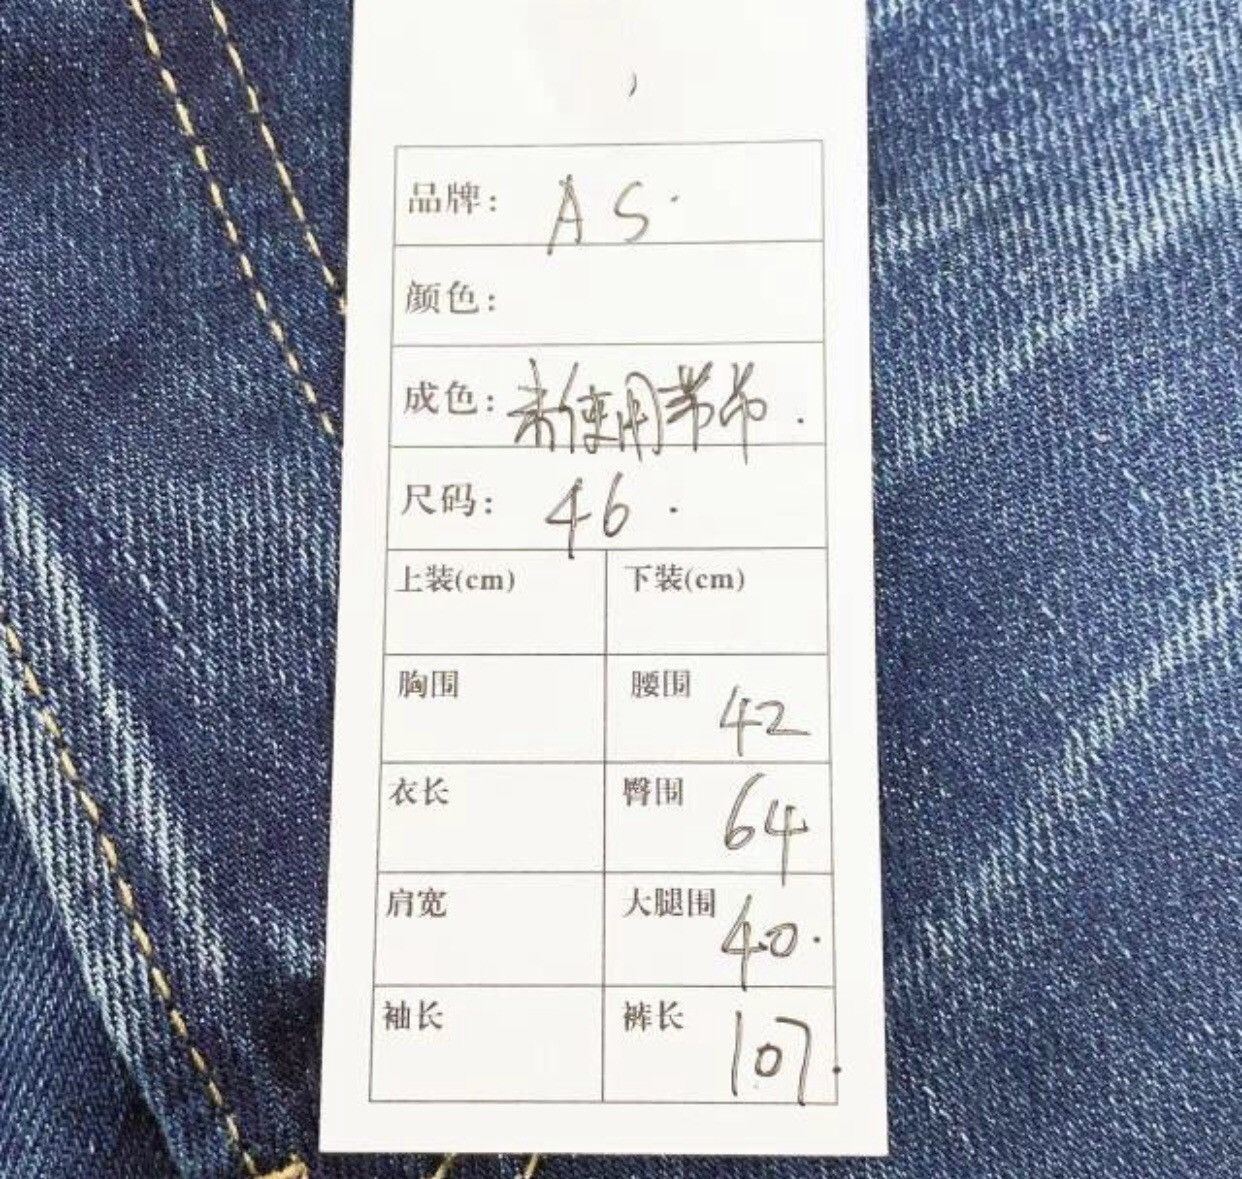 品牌: AS.
颜色:
成色: 未使用带吊.
尺码: 46.
上装(cm) 下装(cm)
胸围 腰围 42
衣长 臀围 64
肩宽 大腿围 40.
袖长 裤长 107.